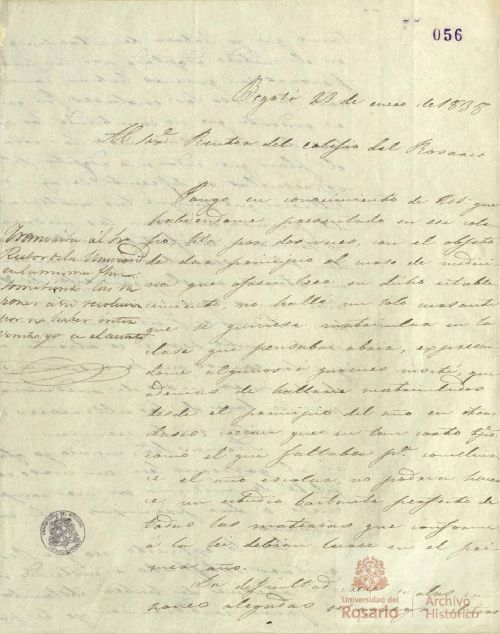 056
Bogotá 23 de enero de 1835
Al Sor. Rector del colegio del Rosario
Pongo en conocimiento de Ud. que
habiendome presentado en ese cole-
gio hta. por dos veces, con el objeto
de dar principio al curso de medici-
na que ofreci leer en dicho estable-
cimiento no hallé un solo cursante
que se quisiese matricular en la
clase que pensaba abrir, expresan-
dome algunos a quienes insté, que
ademas de hallarse matriculados
desde el principio del año en otras
clases, creian que en tan corto tpo.
como el que faltaba pa. concluir-
se el año escolar, no podian hacer-
se un estudio bastante perfecto de
todas las materias que conforme
a la lei debian leerse en el pri-
mer año.
La dificultad
zones alegadas
Transcrita al Sr
Rector de la Universidad
por no haber inter-
venido yo en el asunto
Universidad del
Rosario
Archivo
Histórico